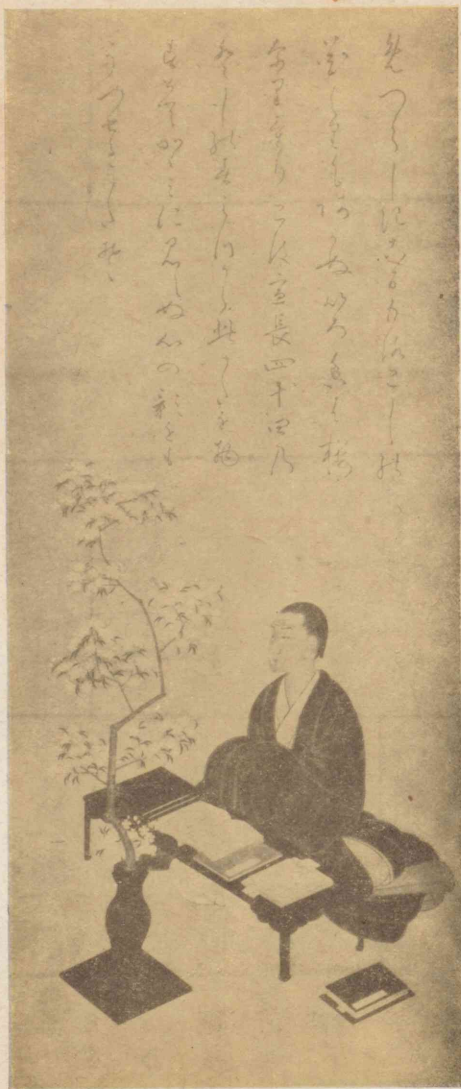 めつらしきこまもろこしの
花よりもあかぬいろ香は桜
なりけり こは宣長四十四の
としの春みつから此かたを物
すとてかゝみに見えぬ心の影をも
うつせるうたそ